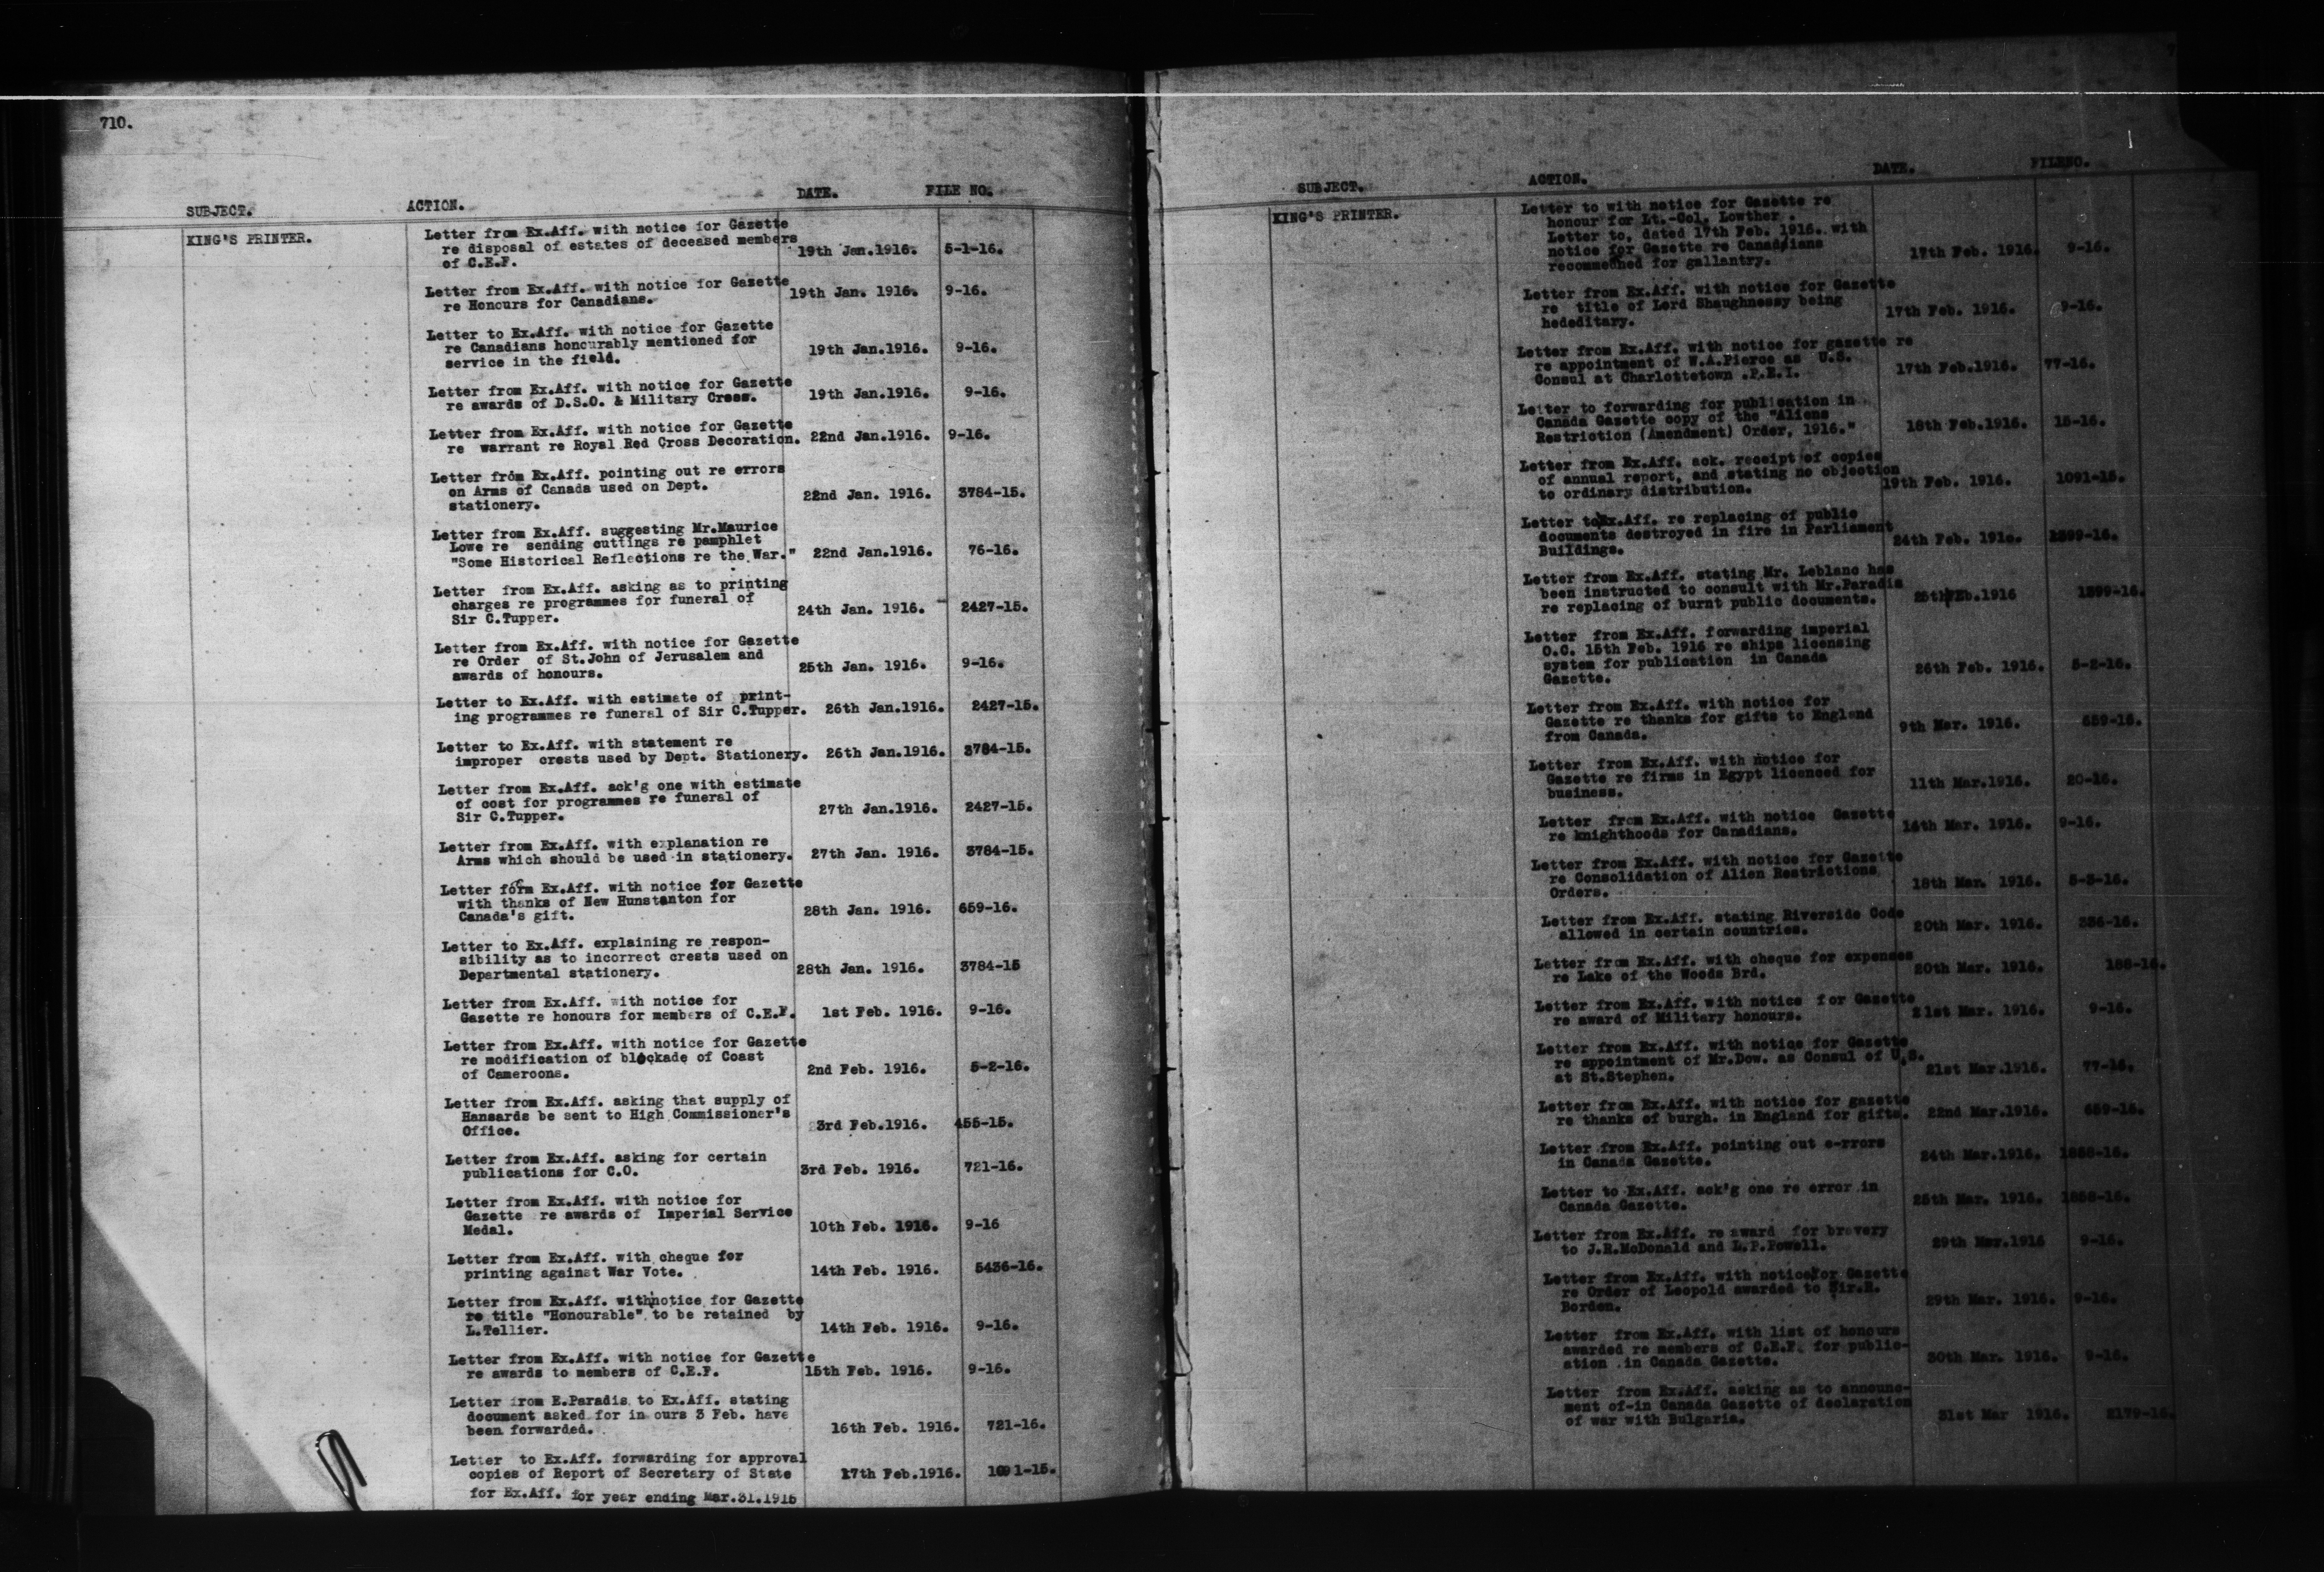 710.
SUBJECT. ACTION. DATE. FILE NO.
KING'S PRINTER.
Letter from Ex.Aff. with notice for Gazette
re disposal of estates of deceased members
of C.E.F. 19th Jan.1916. 5-1-16.
Letter from Ex.Aff. with notice for Gazette
re Honours for Canadians. 19th Jan. 1916. 9-16.
Letter to Ex.Aff. with notice for Gazette
re Canadians honourably mentioned for
service in the field. 19th Jan.1916. 9-16.
Letter from Ex.Aff. with notice for Gazette
re awards of D.S.O. & Military Cross. 19th Jan.1916. 9-16.
Letter from Ex.Aff. with notice for Gazette
re warrant re Royal Red Cross Decoration. 22nd Jan.1916. 9-16.
Letter from Ex.Aff. pointing out re errors
on Arms of Canada used on Dept.
stationery. 22nd Jan. 1916. 3784-15.
Letter from Ex.Aff. suggesting Mr.Maurice
Lowe re sending cuttings re pamphlet
"Some Historical Reflections re the War." 22nd Jan.1916. 76-16.
Letter from Ex.Aff. asking as to printing
charges re programmes for funeral of
Sir C.Tupper. 24th Jan. 1916. 2427-15.
Letter from Ex.Aff. with notice for Gazette
re Order of St.John of Jerusalem and
awards of honours. 25th Jan. 1916. 9-16.
Letter to Ex.Aff. with estimate of print-
ing programmes re funeral of Sir C.Tupper. 26th Jan.1916. 2427-15.
Letter to Ex.Aff. with statement re
improper crests used by Dept. Stationery. 26th Jan.1916. 3784-15.
Letter from Ex.Aff. ack'g one with estimate
of cost for programmes re funeral of
Sir C.Tupper. 27th Jan.1916. 2427-15.
Letter from Ex.Aff. with explanation re
Arms which should be used in stationery. 27th Jan. 1916. 3784-15.
Letter form Ex.Aff. with notice for Gazette
with thanks of New Hunstanton for
Canada's gift. 28th Jan. 1916. 659-16.
Letter to Ex.Aff. explaining re respon-
sibility as to incorrect crests used on
Departmental stationery. 28th Jan. 1916. 3784-15
Letter from Ex.Aff. with notice for
Gazette re honours for members of C.E.F. 1st Feb. 1916. 9-16.
Letter from Ex.Aff. with notice for Gazette
re modification of blockade of Coast
of Cameroons. 2nd Feb. 1916. 5-2-16.
Letter from Ex.Aff. asking that supply of
Hansards be sent to High Commissioner's
Office. 3rd Feb.1916. 455-15.
Letter from Ex.Aff. asking for certain
publications for C.O. 3rd Feb. 1916. 721-16.
Letter from Ex.Aff. with notice for
Gazette re awards of Imperial Service
Medal. 10th Feb. 1916. 9-16
Letter from Ex.Aff. with cheque for
printing against War Vote. 14th Feb. 1916. 5436-16.
Letter from Ex.Aff. with notice for Gazette
re title "Honourable" to be retained by
L.Tellier. 14th Feb. 1916. 9-16.
Letter from Ex.Aff. with notice for Gazette
re awards to members of C.E.F. 15th Feb. 1916. 9-16.
Letter from E.Paradis to Ex.Aff. stating
document asked for in ours 3 Feb. have
been forwarded. 16th Feb. 1916. 721-16.
Letter to Ex.Aff. forwarding for approval
copies of Report of Secretary of State 17th Feb.1916. 1091-15.
for Ex.Aff. for year ending Mar.31.1915
SUBJECT. ACTION. DATE. FILENO.
KING'S PRINTER.
Letter to with notice for Gazette re
honour for Lt.-Col. Lowther .
Letter to, dated 17th Feb. 1916. with
notice for Gazette re Canadians 17th Feb. 1916. 9-16.
recommedned for gallantry.
Letter from Ex.Aff. with notice for Gazette
re title of Lord Shaughnessy being
hededitary. 17th Feb. 1916. 9-16.
Letter from Ex.Aff. with notice for gazette re
re appointment of W.A.Pierce as U.S.
Consul at Charlottetown .P.E.I. 17th Feb.1916. 77-16.
Letter to forwarding for publication in
Canada Gazette copy of the "Aliens
Restriction (Amendment) Order, 1916." 18th Feb.1916. 15-16.
Letter from Ex.Aff. ack. receipt of copies
of annual report, and stating no objection
to ordinary distribution. 19th Feb. 1916. 1091-15.
Letter to Ex.Aff. re replacing of public
documents destroyed in fire in Parliament
Buildings. 24th Feb. 1916. 1399-16.
Letter from Ex.Aff. stating Mr. Leblanc has
been instructed to consult with Mr.Paradis
re replacing of burnt public documents. 25th Feb.1916 1399-16.
Letter from Ex.Aff. forwarding imperial
O.C. 15th Feb. 1916 re ships licensing
system for publication in Canada
Gazette. 26th Feb. 1916. 5-2-16.
Letter from Ex.Aff. with notice for
Gazette re thanks for gifts to England
from Canada. 9th Mar. 1916. 659-16.
Letter from Ex.Aff. with notice for
Gazette re firms in Egypt licenced for
business. 11th Mar.1916. 20-16.
Letter from Ex.Aff. with notice Gazette
re knighthoods for Canadians. 16th Mar. 1916. 9-16.
Letter from Ex.Aff. with notice for Gazette
re Consolidation of Alien Restrictions
Orders. 18th Mar. 1916. 5-3-16.
Letter from Ex.Aff. stating Riverside Code
allowed in certain countries. 20th Mar. 1916. 336-16.
Letter from Ex.Aff. with cheque for expenses
re Lake of the Woods Brd. 20th Mar. 1916. 188-16.
Letter from Ex.Aff. with notice for Gazette
re award of Military honours. 21st Mar. 1916. 9-16.
Letter from Ex.Aff. with notice for Gazette
re appointment of Mr.Dow. as Consul of U.S.
at St.Stephen. 21st Mar.1916. 77-16.
Letter from Ex.Aff. with notice for gazette
re thanks of burgh. in England for gifts. 22nd Mar.1916. 659-16.
Letter from Ex.Aff. pointing out e-rrors
in Canada Gazette. 24th Mar.1916. 1858-16.
Letter to Ex.Aff. ack'g one re error in
Canada Gazette. 25th Mar. 1916. 1858-16.
Letter from Ex.Aff. re award for bravery
to J.R.McDonald and L.P.Powell. 29th Mar.1916 9-16.
Letter from Ex.Aff. with notice for Gazette
re Order of Leopold awarded to Sir.R.
Borden. 29th Mar. 1916. 9-16.
Letter from Ex.Aff. with list of honours
awarded re members of C.E.F. for public-
ation .in Canada Gazette. 30th Mar. 1916. 9-16.
Letter from Ex.Aff. asking as to announc-
ment of-in Canada Gazette of declaration
of war with Bulgaria. 31st Mar 1916. 2179-16.